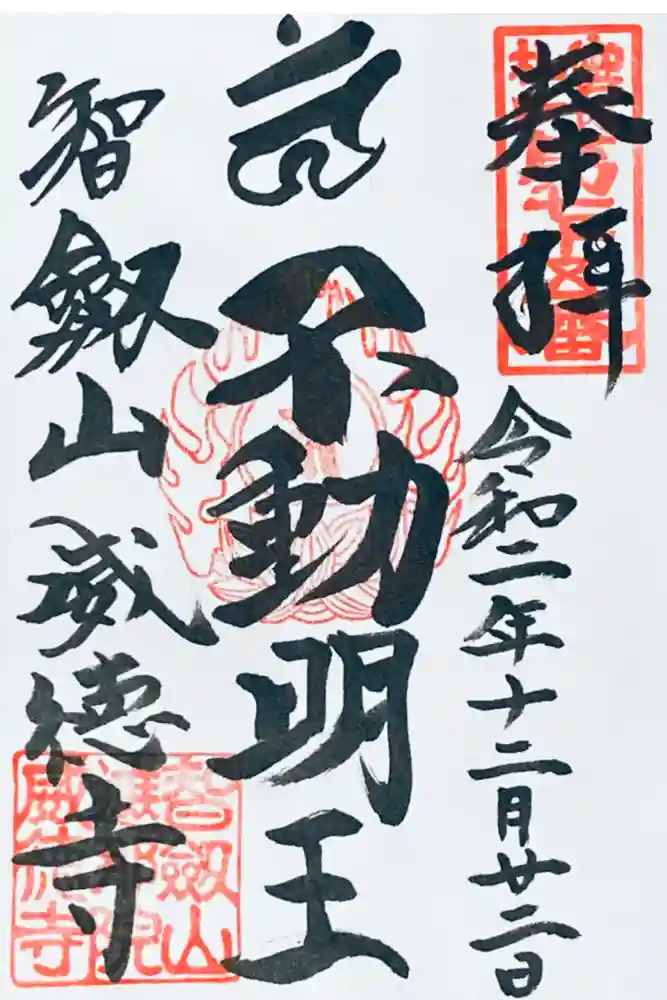 奉拝
令和二年十二月廿二日
不動明王
智劔山威徳寺
智劔山
院
威徳寺